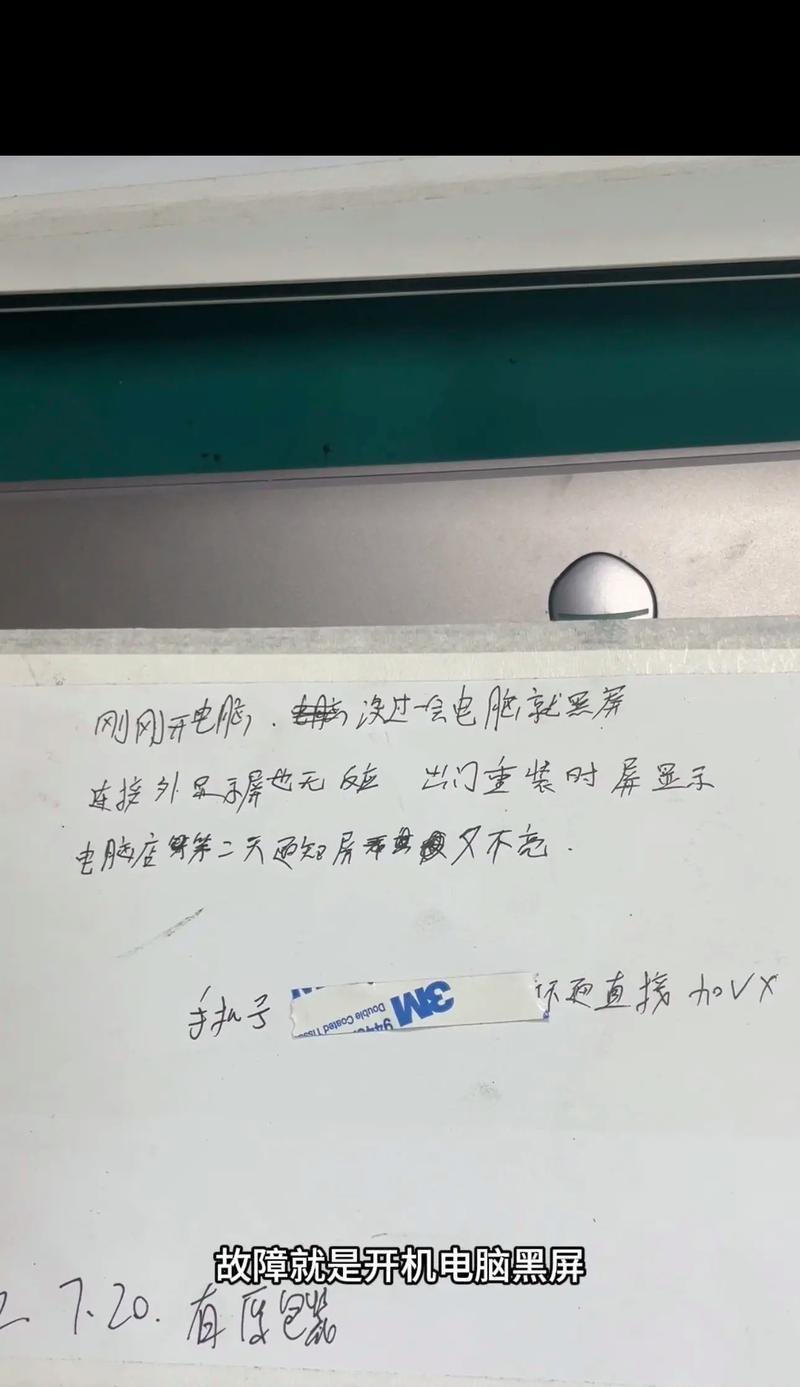 刚刚开电脑,.没过一会电脑就黑屏
连接外显示屏也无反应 出门重装时屏显示
电脑店 第二天 屏 又不亮.
手机号 直接加VX
3M
Double Coated Tiss
944
故障就是开机电脑黑屏
2. 7.20. 有原包装